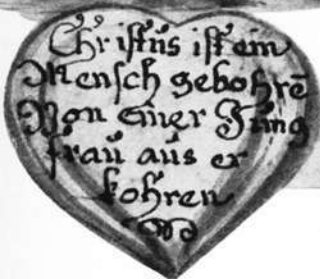 Christus ist ein
Mensch gebohrē
Von einer Jung
frau aus er
kohren